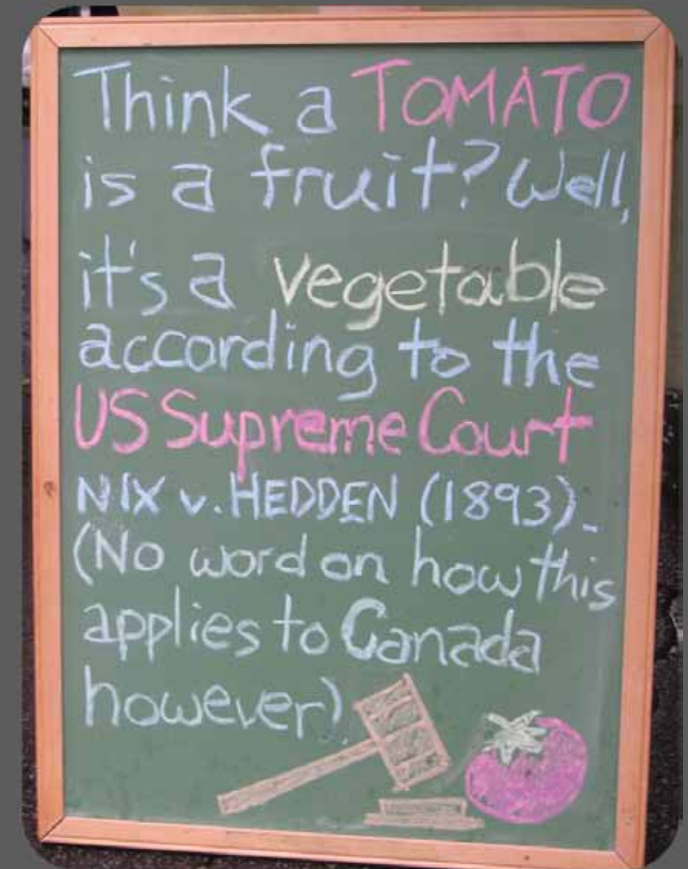 Think a TOMATO
is a fruit? Well,
it's a vegetable
according to the
US Supreme Court
NIX v. HEDDEN (1893).
(No word on how this
applies to Canada
however).